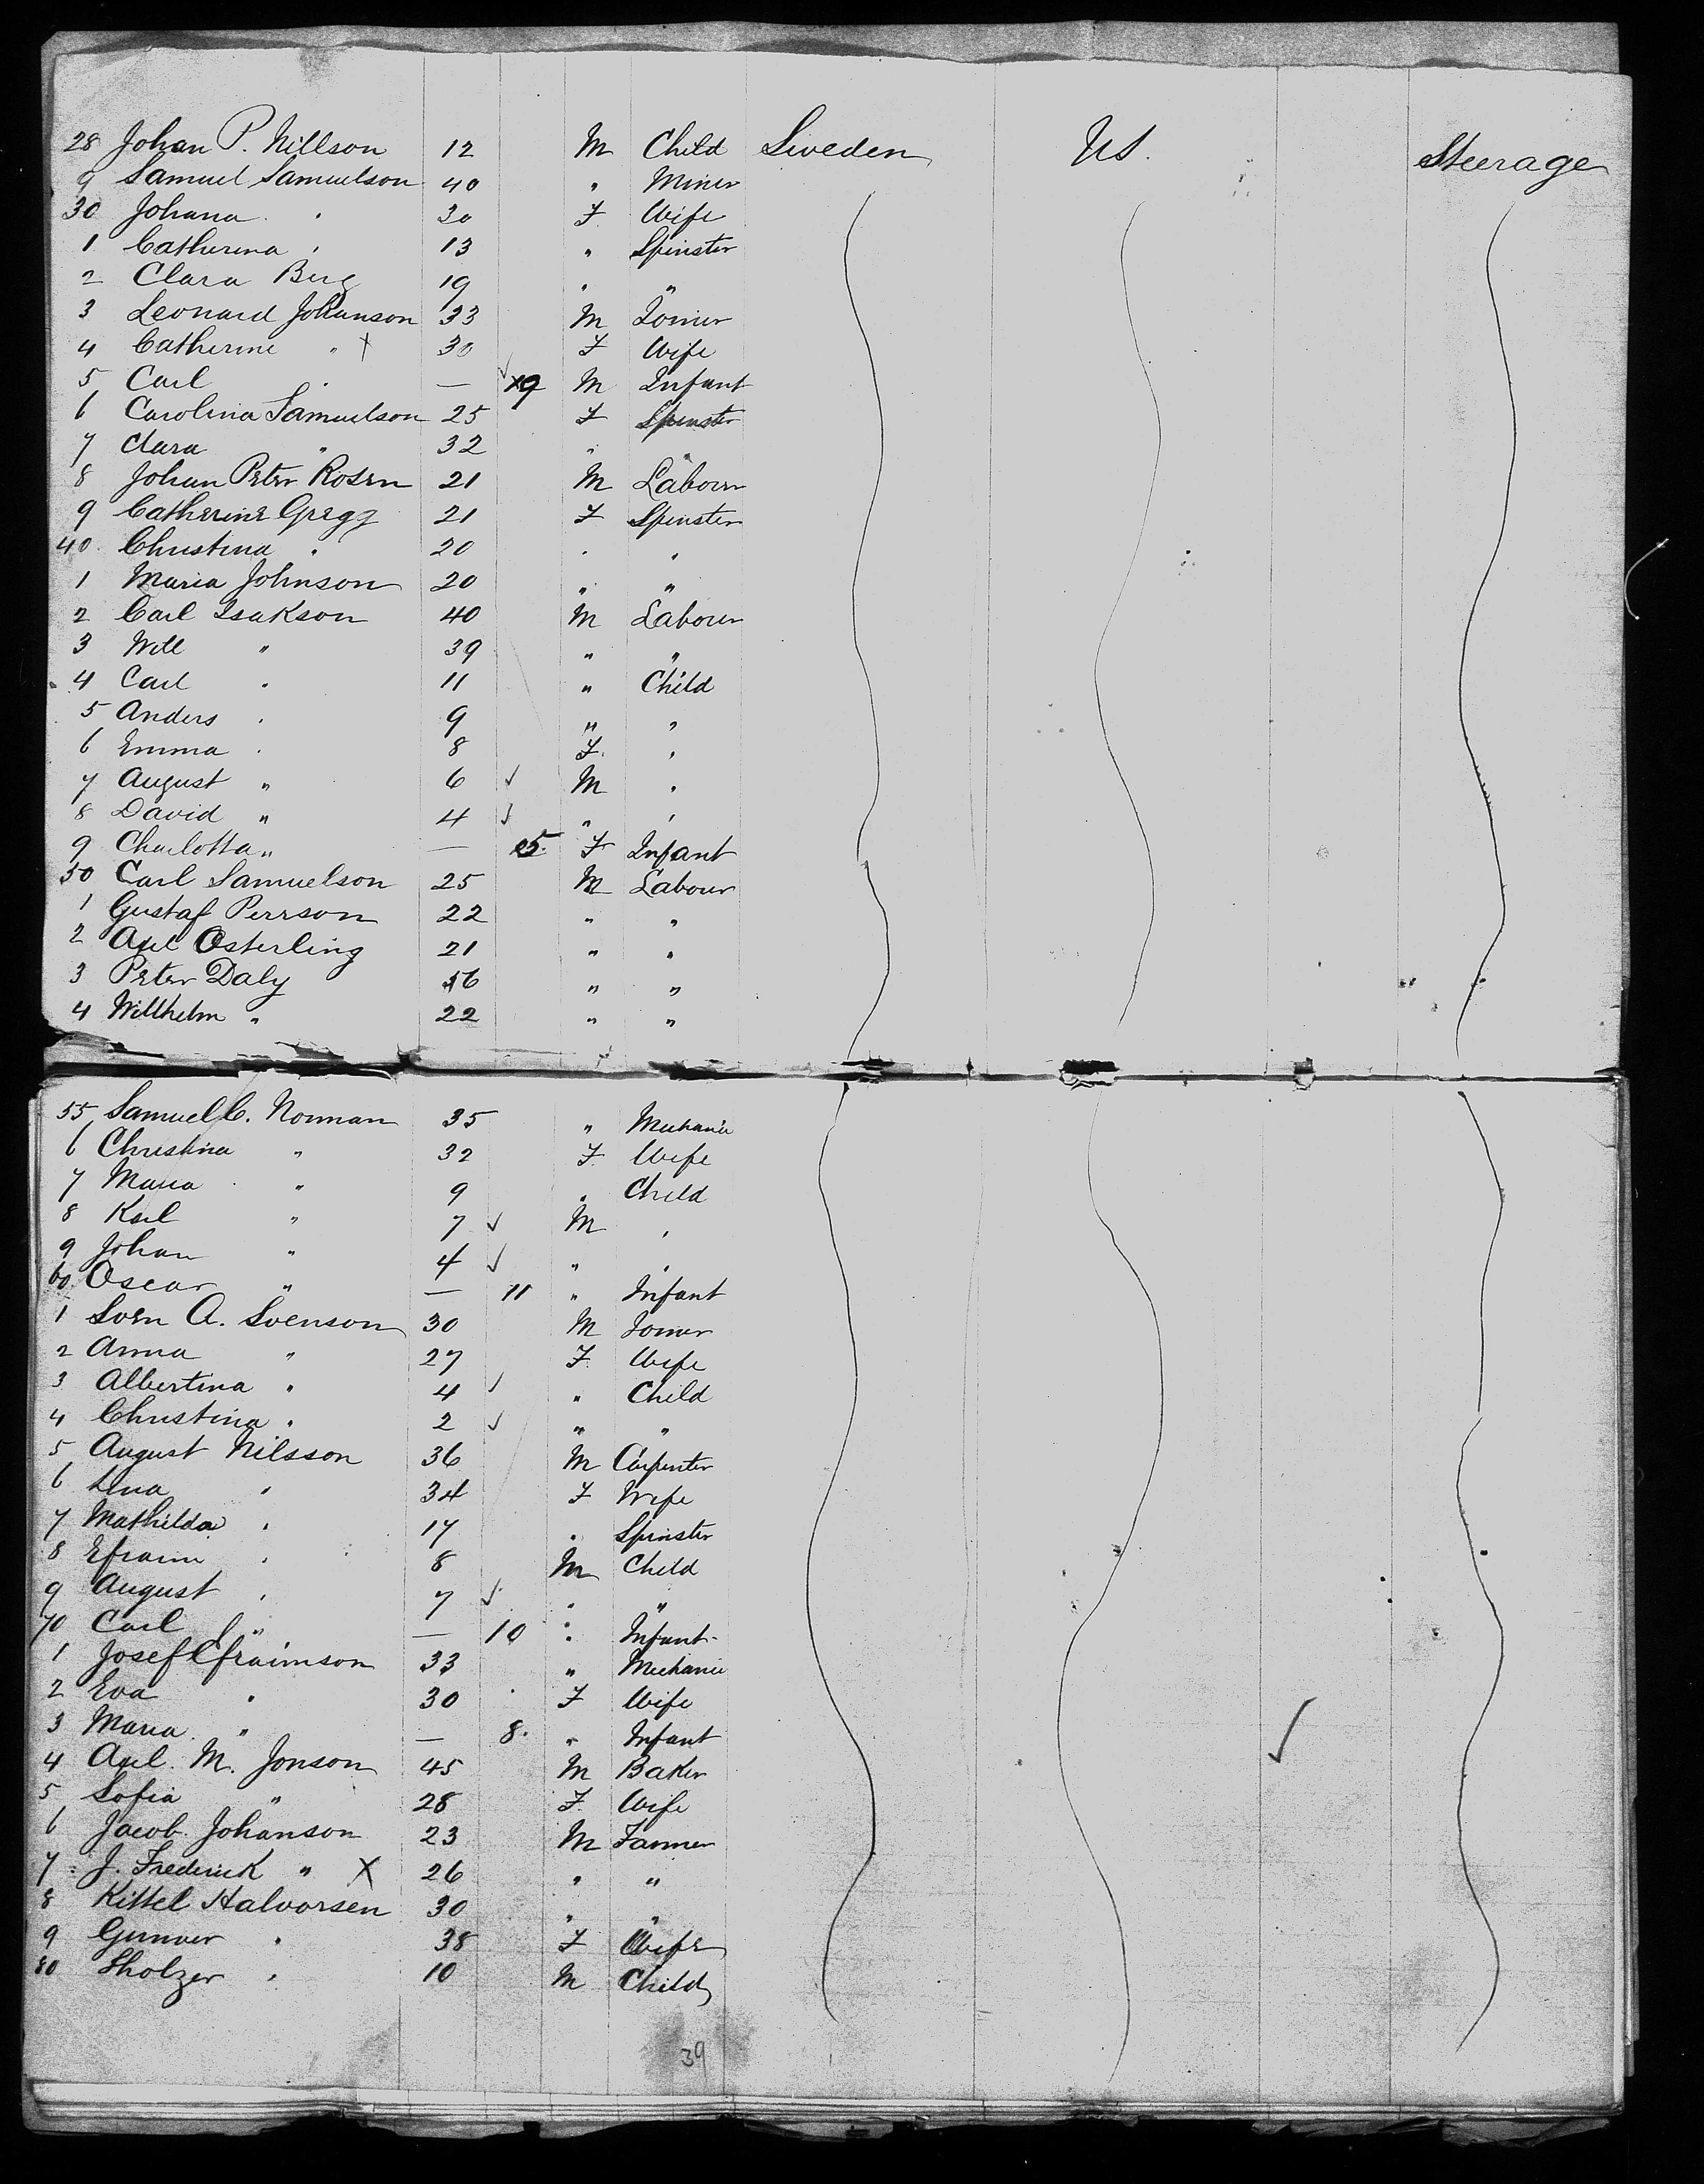 28 Johan P. Nillson 12 M Child Sweden US. Steerage
9 Samuel Samuelson 40 " Miner
30 Johana " 30 F Wife
1 Catherina " 13 " Spinster
2 Clara Berg 19 " "
3 Leonard Johanson 33 M Joiner
4 Catherine " X 30 F Wife
5 Carl " — ✓ x9 M Infant
6 Carolina Samuelson 25 F Spinster
7 Clara " 32 " "
8 Johan Peter Rosen 21 M Labour
9 Catherine Gregg 21 F Spinster
40 Christina " 20 " "
1 Maria Johnson 20 " "
2 Carl Isakson 40 M Labour
3 Will " 39 " "
4 Carl " 11 " Child
5 Anders " 9 " "
6 Emma " 8 F "
7 August " 6 ✓ M "
8 David " 4 ✓ " "
9 Charlotta " — 5 F Infant
50 Carl Samuelson 25 M Labour
1 Gustaf Perrson 22 " "
2 Axel Osterling 21 " "
3 Peter Daly 56 " "
4 Willhelm " 22 " "
55 Samuel C. Norman 35 " Mechanic
6 Christina " 32 F Wife
7 Maria " 9 " Child
8 Karl " 7 ✓ M "
9 Johan " 4 ✓ " "
60 Oscar " — 11 " Infant
1 Sven A. Svenson 30 M Joiner
2 Anna " 27 F Wife
3 Albertina " 4 ✓ " Child
4 Christina " 2 ✓ " "
5 August Nilsson 36 M Carpenter
6 Lena " 34 F Wife
7 Mathilda " 17 " Spinster
8 Efraim " 8 M Child
9 August " 7 ✓ " "
70 Carl " — 10 " Infant
1 Josef Efraimson 33 " Mechanic
2 Eva " 30 F Wife
3 Maria " — 8 " Infant ✓
4 Axel M. Jonson 45 M Baker
5 Sofia " 28 F Wife
6 Jacob Johanson 23 M Farmer
7 J. Frederick " X 26 " "
8 Kittel Halvorsen 30 " "
9 Gunver " 38 F Wife
80 " 10 M Child
39